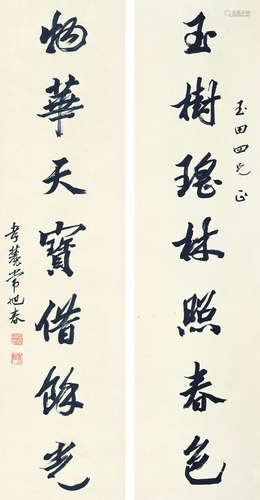 玉田四兄正
玉樹瑤林照春色
物華天寶借餘光
孝慈常旭春